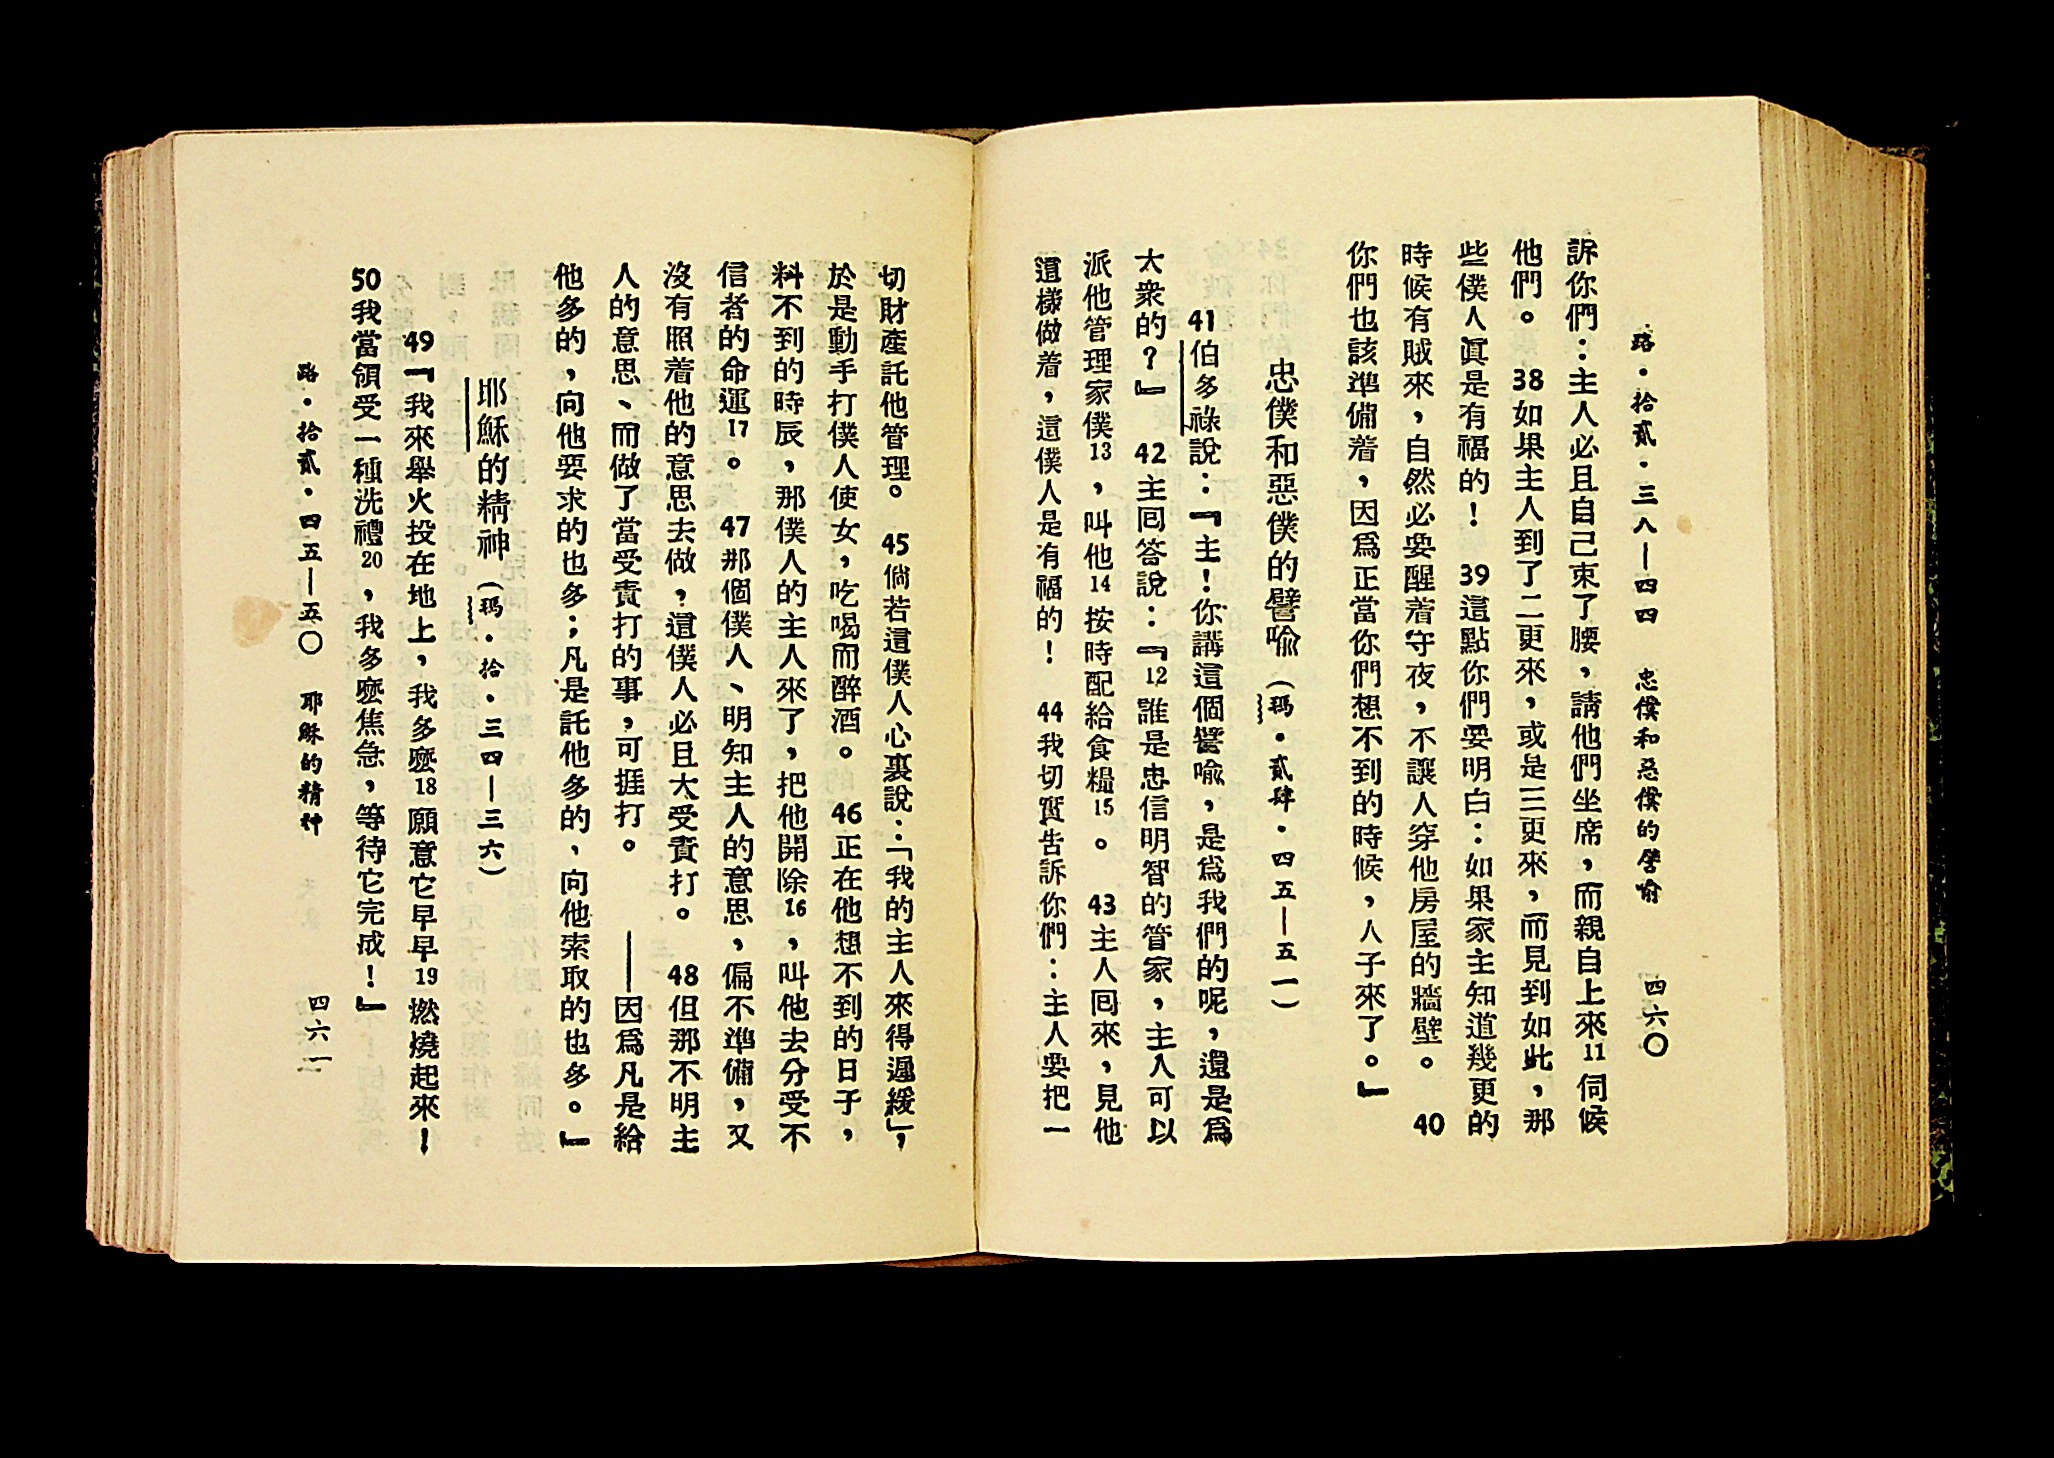 路・拾貳・三八—四四　忠僕和惡僕的譬喻　四六〇
訴你們：主人必且自己束了腰，請他們坐席，而親自上來11伺候
他們。38如果主人到了二更來，或是三更來，而見到如此，那
些僕人眞是有福的！39這點你們要明白：如果家主知道幾更的
時候有賊來，自然必要醒着守夜，不讓人穿他房屋的牆壁。40
你們也該準備着，因爲正當你們想不到的時候，人子來了。』
忠僕和惡僕的譬喻（瑪・貳肆・四五—五一）
41伯多祿說：『主！你講這個譬喻，是爲我們的呢，還是爲
太衆的？』42主囘答說：『12誰是忠信明智的管家，主人可以
派他管理家僕13，叫他14按時配給食糧15。43主人囘來，見他
這樣做着，這僕人是有福的！44我切實告訴你們：主人要把一
切財產託他管理。45倘若這僕人心裏說：「我的主人來得遲緩」，
於是動手打僕人使女，吃喝而醉酒。46正在他想不到的日子，
料不到的時辰，那僕人的主人來了，把他開除16，叫他去分受不
信者的命運17。47那個僕人、明知主人的意思，偏不準備，又
沒有照着他的意思去做，這僕人必且大受責打。48但那不明主
人的意思、而做了當受責打的事，可捱打。——因爲凡是給
他多的，向他要求的也多；凡是託他多的，向他索取的也多。』
耶穌的精神（瑪・拾・三四—三六）
49『我來舉火投在地上，我多麽18願意它早早19燃燒起來！
50我當領受一種洗禮20，我多麽焦急，等待它完成！』
路・拾貳・四五—五〇　耶穌的精神　四六一